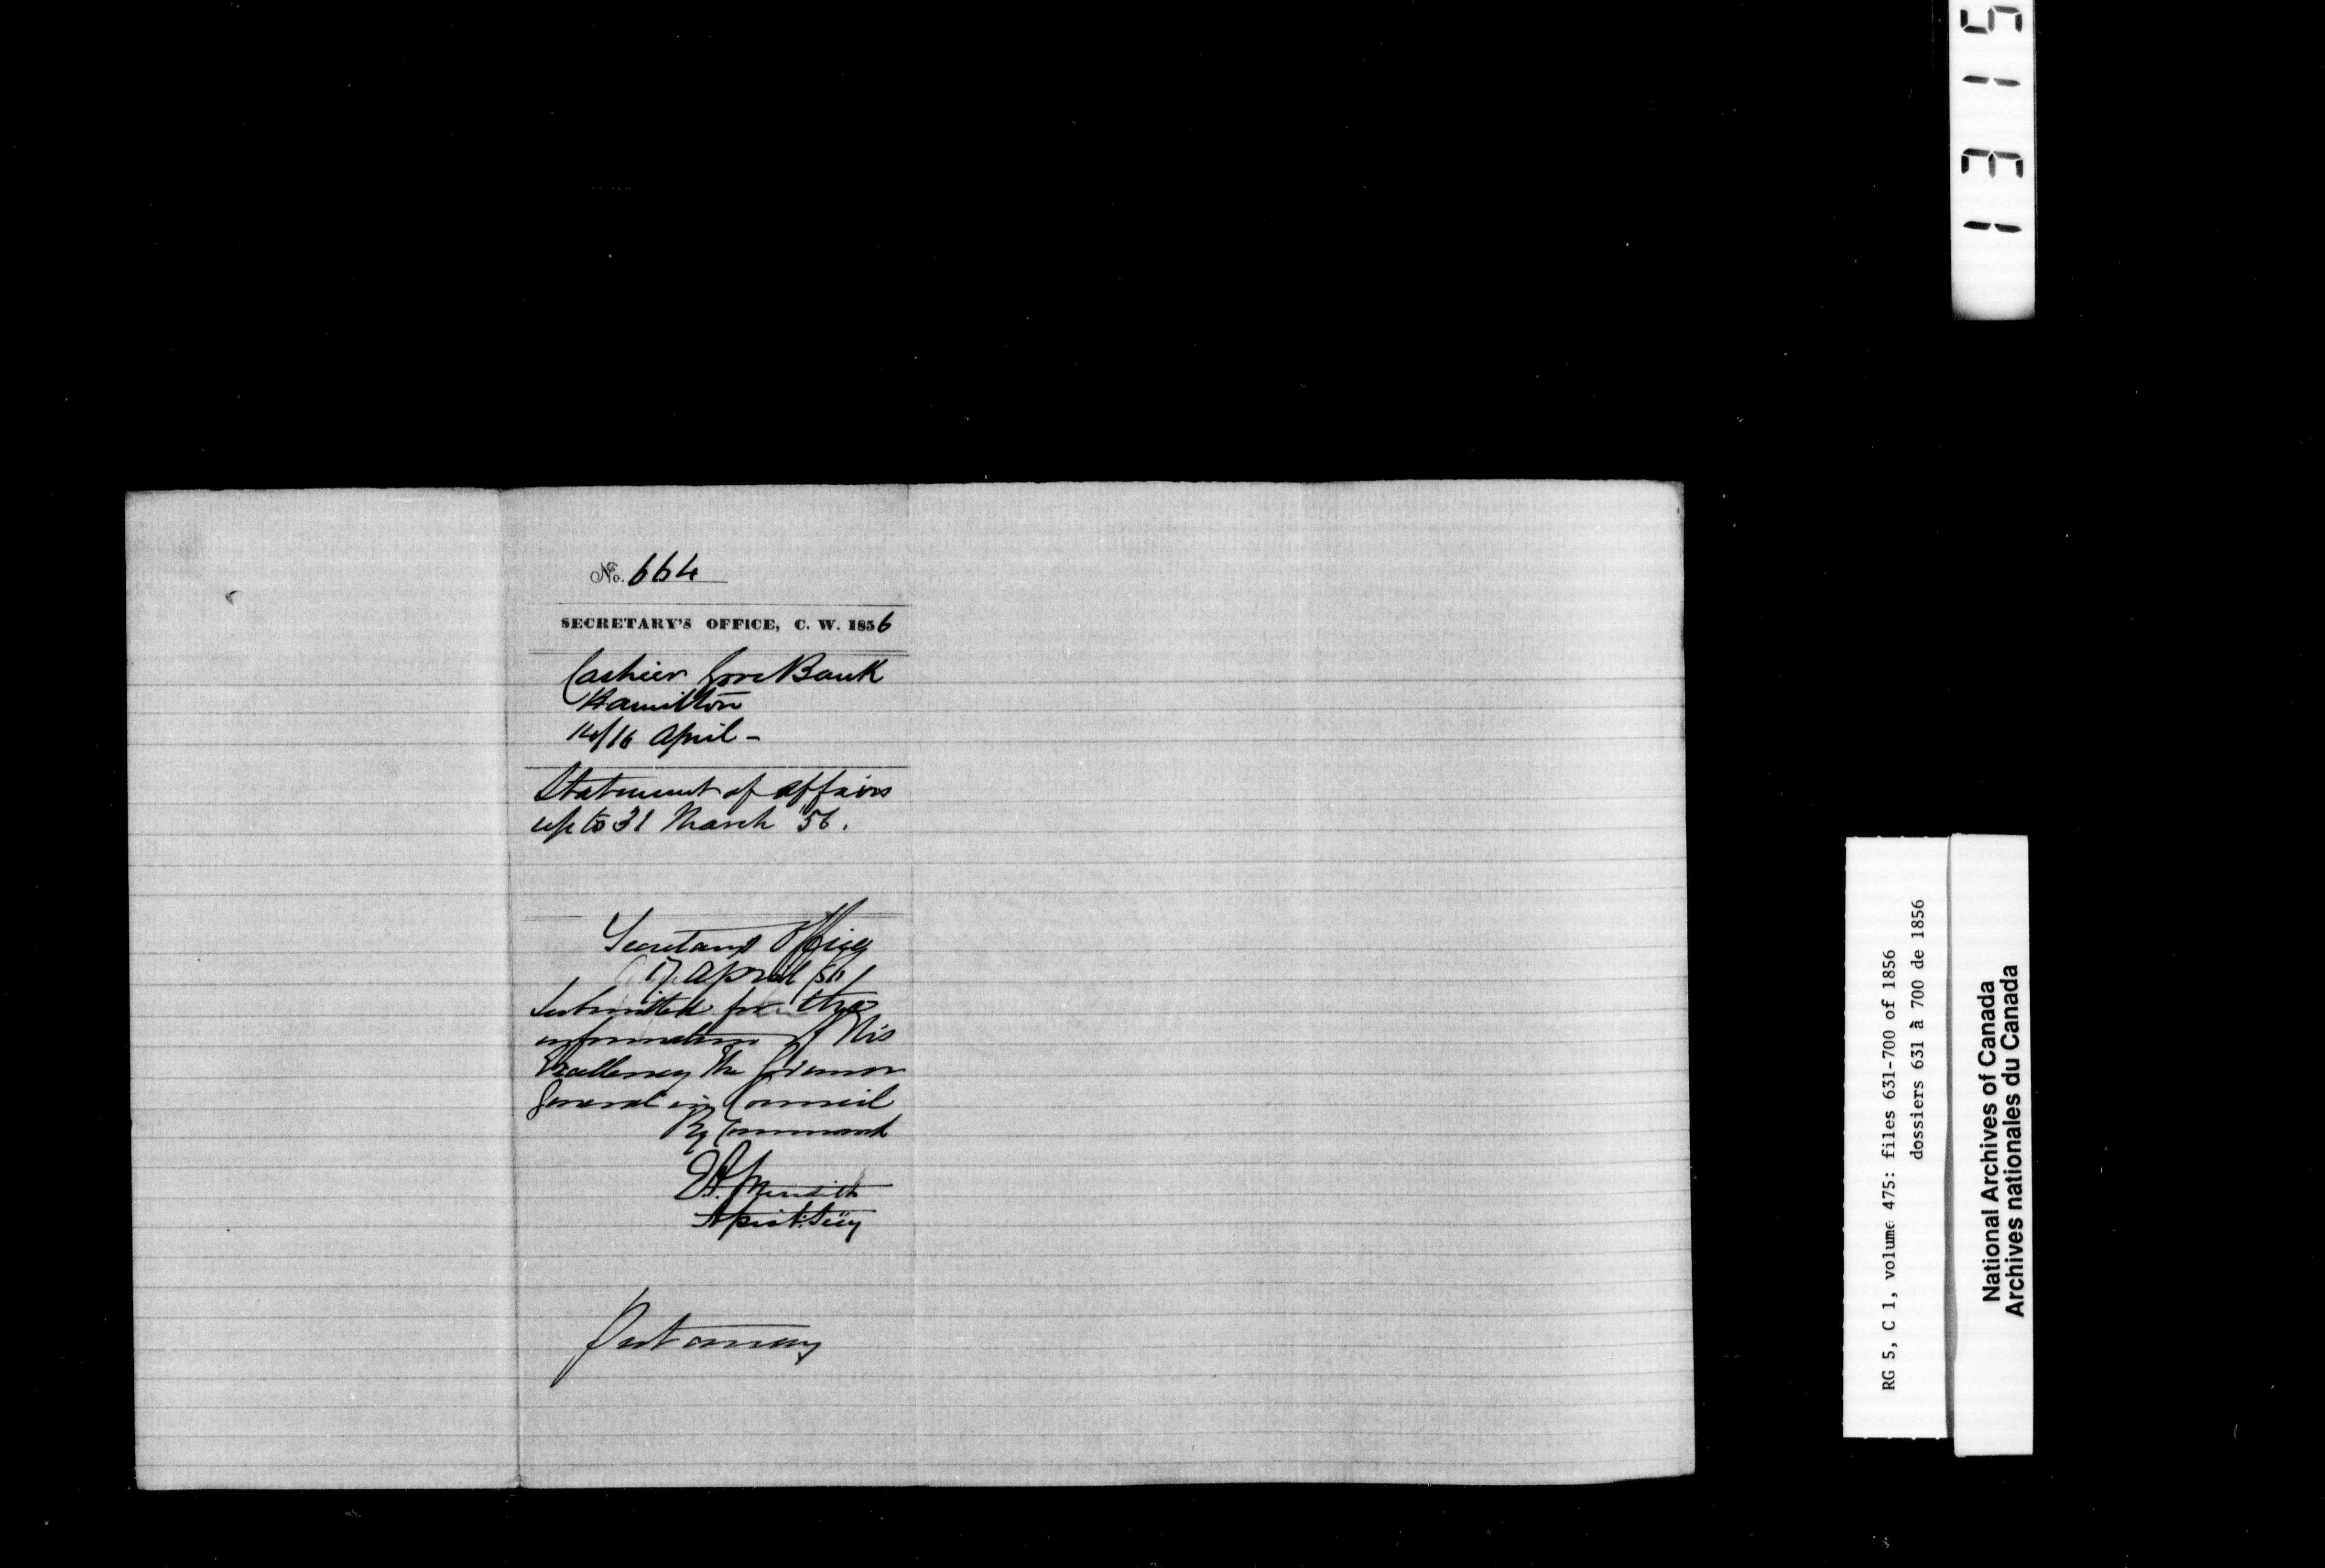 No. 664
SECRETARY'S OFFICE, C. W. 1856
Cashier Gore Bank
Hamilton
14/16 April -
Statement of affairs
up to 31 March '56.
Secretary's Office
17 April /56
Submitted for the
information of His
Excellency The Governor
General in Council
By Command
E.A. Meredith
Asst. Secy
Put away
1315
RG 5, C 1, volume 475: files 631-700 of 1856
dossiers 631 à 700 de 1856
National Archives of Canada
Archives nationales du Canada